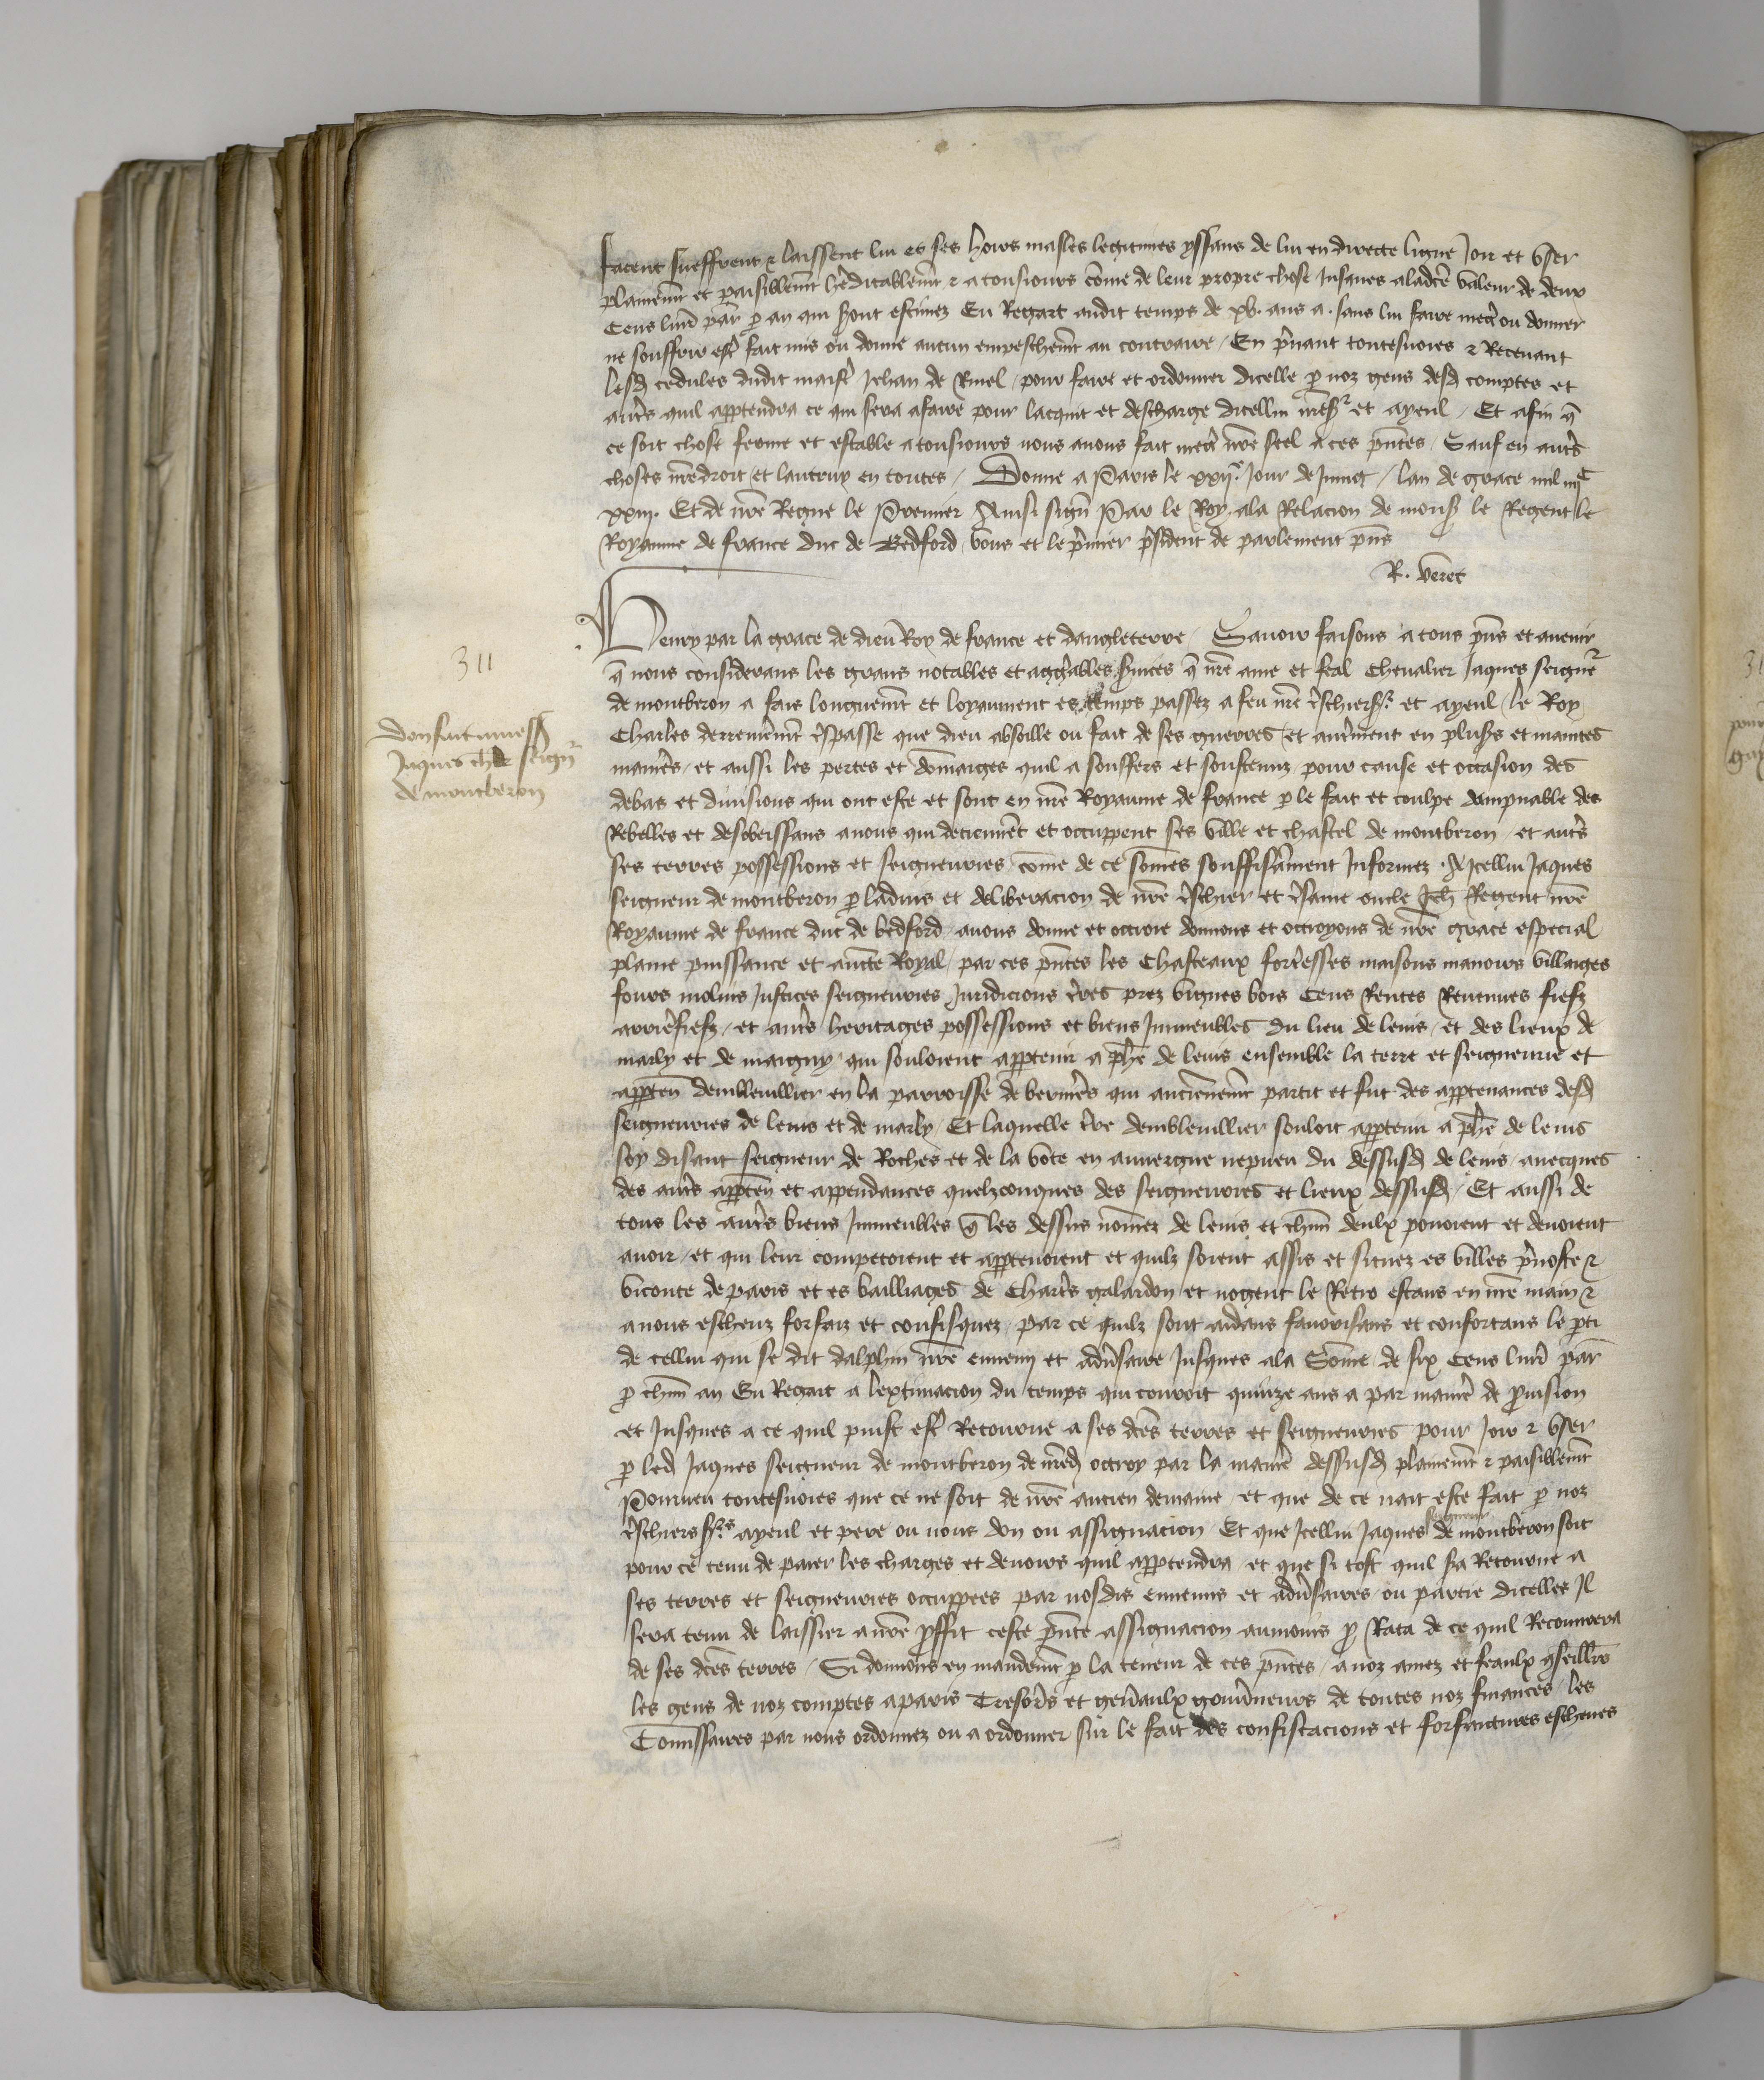 facent sueffrent & laissent lui et ses hoirs masles legitimes yssans de lui en directe ligne Joir et user
plainemt et paisiblemt heditablemt & a tousiours come de leur propre chose Jusques aladce valeur de deux
Cens livr par p an qui sont estimez Eu Regart audit temps de xv. ans a . sans lui faire mect ou donner
ne souffrir estr fait mis ou donne aucun empeschemt au contraire / En prnant toutesuoies & Recevant
lesd cedules dudit maistr Jehan de Ruel / pour faire et ordonner dicelle p noz gens desd comptes et
autrs quil apptendra ce qui sera afaire pour lacquit et descharge dicellui nres et ayeul / Et afin q
ce soit chose ferme et estable a tousiours nous avons fait mectr nre seel a ces pntes / Sauf en autrs
choses nredroit et lautruy en toutes / Donne a Paris le xxije Jour de Juing / lan de grace mil iiijC
xxiij. Et de nre Regne le Premier Ainsi signe Par le Roy . ala Relacion de mons le Regent le
Royaume de france duc de Bedford / vous et le prmier prsident de parlement pns
R. veret
311
Don fait a mess
Jaques chlr seignr
de montberon
Henry par la grace de dieu Roy de france et dangleterre / Savoir faisons a tous pns et avenir
q nous considerans les grans notables et aggrables svices q nre ame et feal Chevalier Jaques seigner
de montberon a fais longuemt et loyaument es temps passez a feu nre treschiers et ayeul / le Roy
Charles derremt trespasse que dieu absoille ou fait de ses guerres / et autrment en plusrs et maintes
manrs / et aussi les pertes et domaiges quil a souffers et soustenuz pour cause et occasion des
debas et divisions qui ont este et sont en nre Royaume de france p le fait et coulpe dampnable des
Rebelles et desobeissans anous qui detiennet et occuppent ses ville et chastel de montberon / et autrs
ses terres possessions et seigneuries come de ce somes souffisament Informez . A Jcellui Jaques
seigneur de montberon p ladvis et deliberacion de nre treschier et tresame oncle Jeh Regent nre
Royaume de france duc de bedford / avons donne et octroie donnons et octroyons de nre grace especial
plaine puissance et aucte Royal / par ces pntes les Chasteaux forteresses maisons manoirs villaiges
fours molins Justices seigneuries Juridicions trres prez vignes bois Cens Rentes Revenues fiefz
arrierefiefz / et autrs heritages possessions et biens Immeubles du lieu de levis / et des lieux de
marly et de maigny qui souloient apptenir a phe de levis ensemble la terre et seigneurie et
apptenn demblevillier en la parroisse de berniers qui anciennemt partit et fut des apptenances desd
seigneuries de levis et de marly / Et laquelle trre demblevillier souloit apptenir a phe de levis
soy disant seigneur de Roches et de la vote en auvergne nepveu du dessusd de levis / avecques
des autrs apptenn et appendances quelzconques des seigneuries et lieux dessusd / Et aussi de
tous les autrs biens Immeubles q les dessus nomez de levis et chun deulx pouoient et devoient
avoir / et qui leur competoient et apptenoient et quilz soient assis et situez es villes prvoste &
viconte de paris et es bailliages de Chartrs galardon et nogent le Retro estans en nre main &
anous escheuz forfaiz et confisquez / par ce quilz sont aidans favorisans et confortans le pti
de cellui qui se dit dalphin nre ennemi et adversaire Jusques ala Some de six Cens livr par
p chun an Eu Regart a lextimacion du temps qui couroit quinze ans a par manier de provision
et Jusques a ce quil puist estr Retourne a ses dces terres et seigneuries pour Joir & user
p led Jaques seigneur de montberon de nred octroy par la manier dessusd plainemt & paisiblemt
Pourveu toutesuoies que ce ne soit de nre ancien demaine / et que de ce nait este fait p noz
treschiers srs ayeul et pere ou nous don ou assignacion Et que Jcellui Jaques seigneur de montberon soit
pour ce tenu de paier les charges et devoirs quil apptendra / et que si tost quil sa Retourne a
ses terres et seigneuries occuppees par nosdis ennemis et adversaires / ou partie dicelles Il
sera tenu de laissier a nre prouffit ceste pnte assignacion aumoins p Rata de ce quil Recouvrera
de ses dces terres / Si donnons en mandemt p la teneur de ces pntes / a noz amez et feaulx conseillrs
les gens de noz comptes aparis Tresorrs et genraulx gouvneurs de toutes noz finances / les
Comissaires par nous ordonnez ou a ordonner sur le fait des confiscacions et forfaictures escheues